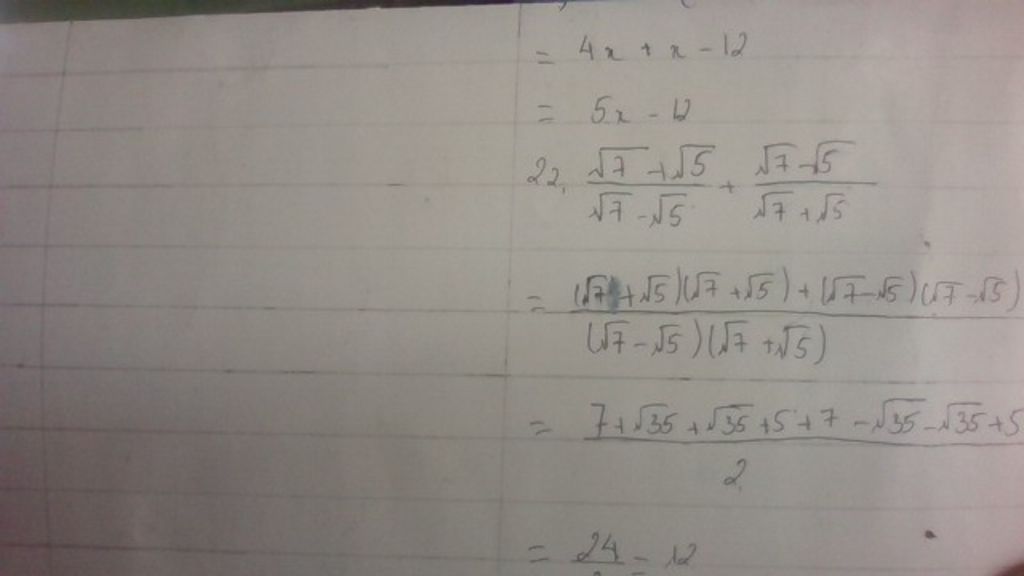 = 4x + x - 12
= 5x - 12
22. (√7 + √5)/(√7 - √5) + (√7 - √5)/(√7 + √5)
= ((√7 + √5)(√7 + √5) + (√7 - √5)(√7 - √5))/((√7 - √5)(√7 + √5))
= (7 + √35 + √35 + 5 + 7 - √35 - √35 + 5)/2
= 24/2 = 12